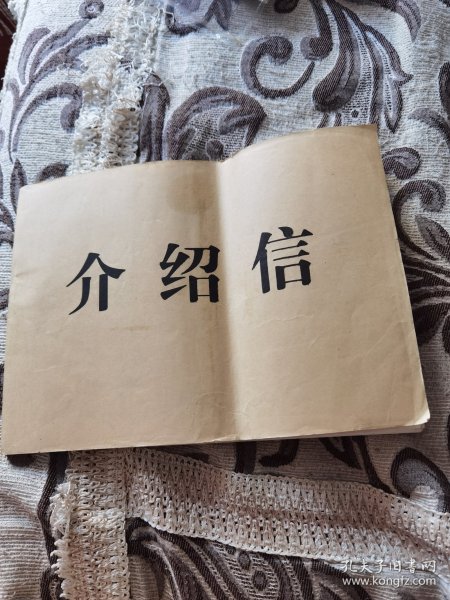 介绍信
孔夫子旧书网
www.kongfz.com